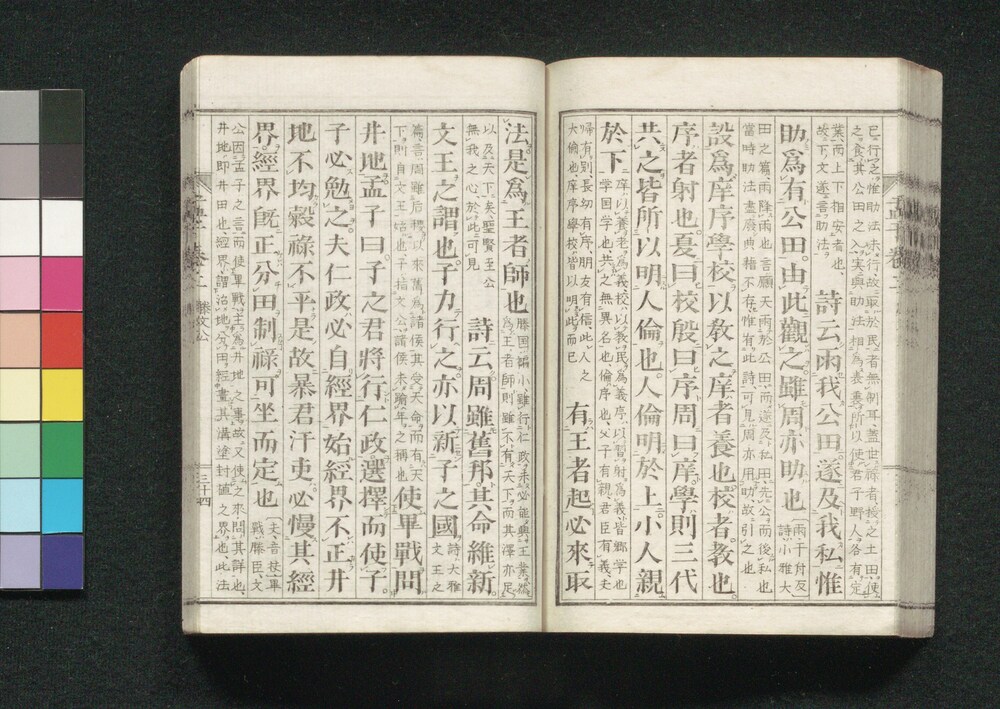 已行之惟助法未行故取於民者無制耳蓋世祿者授之土田使
之食其公田之入實與助法相為表裏所以使君子野人各有定
業而上下相安者也
故下文遂言助法
詩云雨我公田遂及我私惟
助為有公田由此觀之雖周亦助也
雨于付反
詩小雅大
田之篇雨降雨也言願天雨於公田而遂及私田先公而後私也
當時助法盡廢典籍不存惟有此詩可見周亦用助故引之也
設為庠序學校以教之庠者養也校者教也
序者射也夏曰校殷曰序周曰庠學則三代
共之皆所以明人倫也人倫明於上小人親
於下
庠以養老為義校以教民為義序以習射為義皆鄉學也
學国学也共之無異名也倫序也父子有親君臣有義夫
婦有別長幼有序朋友有信此人之
大倫也庠序學校皆以明此而已
有王者起必來取
法是為王者師也
滕国褊小雖行仁政未必能興王業然
為王者師則雖不有天下而其澤亦足
以及天下矣聖賢至公
無我之心於此可見
詩云周雖舊邦其命維新
文王之謂也子力行之亦以新子之國
詩大雅
文王之
篇言周雖后稷以來舊為諸侯其受天命而有天
下則自文王始也子指文公諸侯未踰年之稱也
使畢戰問
井地孟子曰子之君將行仁政選擇而使子
子必勉之夫仁政必自經界始經界不正井
地不均穀祿不平是故暴君汙吏必慢其經
界經界既正分田制祿可坐而定也
夫音扶畢
戰滕臣文
公因孟子之言而使畢戰主為井地之事故又使之來問其詳也
井地即井田也經界謂治地分田經畫其溝塗封植之界也此法
滕文公
三十四